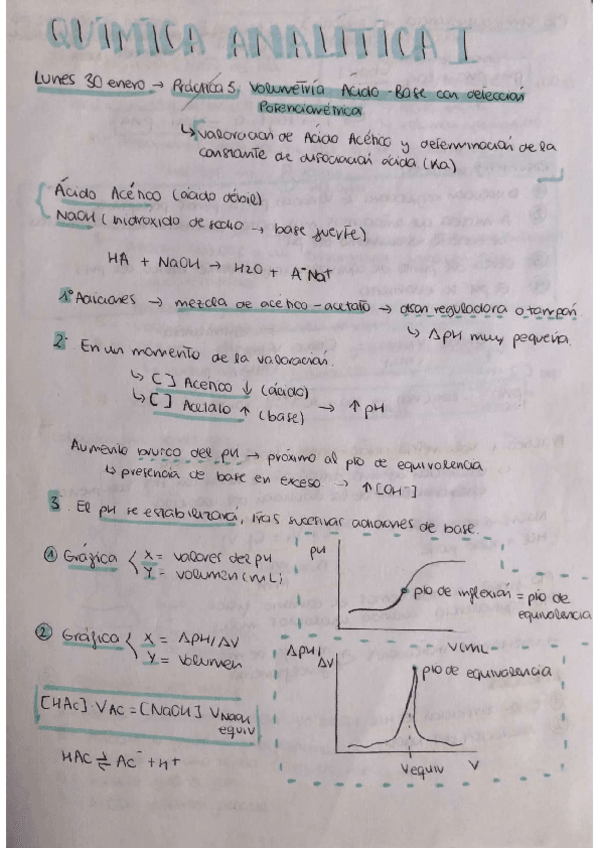 QUÍMICA ANALÍTICA I
Lunes 30 enero → Práctica 5, Volumetría Ácido-Base con detección
Potenciométrica
↳ Valoración de Ácido Acético y determinación de la
constante de disociación ácida (Ka)
Ácido Acético (ácido débil)
NaOH (hidróxido de sodio → base fuerte)
HA + NaOH → H2O + A⁻Na⁺
1º Adiciones → mezcla de acético-acetato → dison reguladora o tampón.
↳ ΔpH muy pequeña.
2. En un momento de la valoración.
↳ [ ] Acético ↓ (ácido)
↳ [ ] Acetato ↑ (base) → ↑ pH
Aumento brusco del pH → próximo al pto de equivalencia
↳ presencia de base en exceso → ↑ [OH⁻]
3. El pH se estabilizará, tras sucesivas adiciones de base.
① Gráfica
X = valores del pH
Y = volumen (mL)
pH
pto de inflexión = pto de
equivalencia
V(mL
② Gráfica
X = ΔpH/ΔV
Y = volumen
ΔpH/
ΔV
pto de equivalencia
Vequiv
V
[HAc]·VAC = [NaOH] VNaOH
equiv
HAc ⇌ Ac⁻ + H⁺